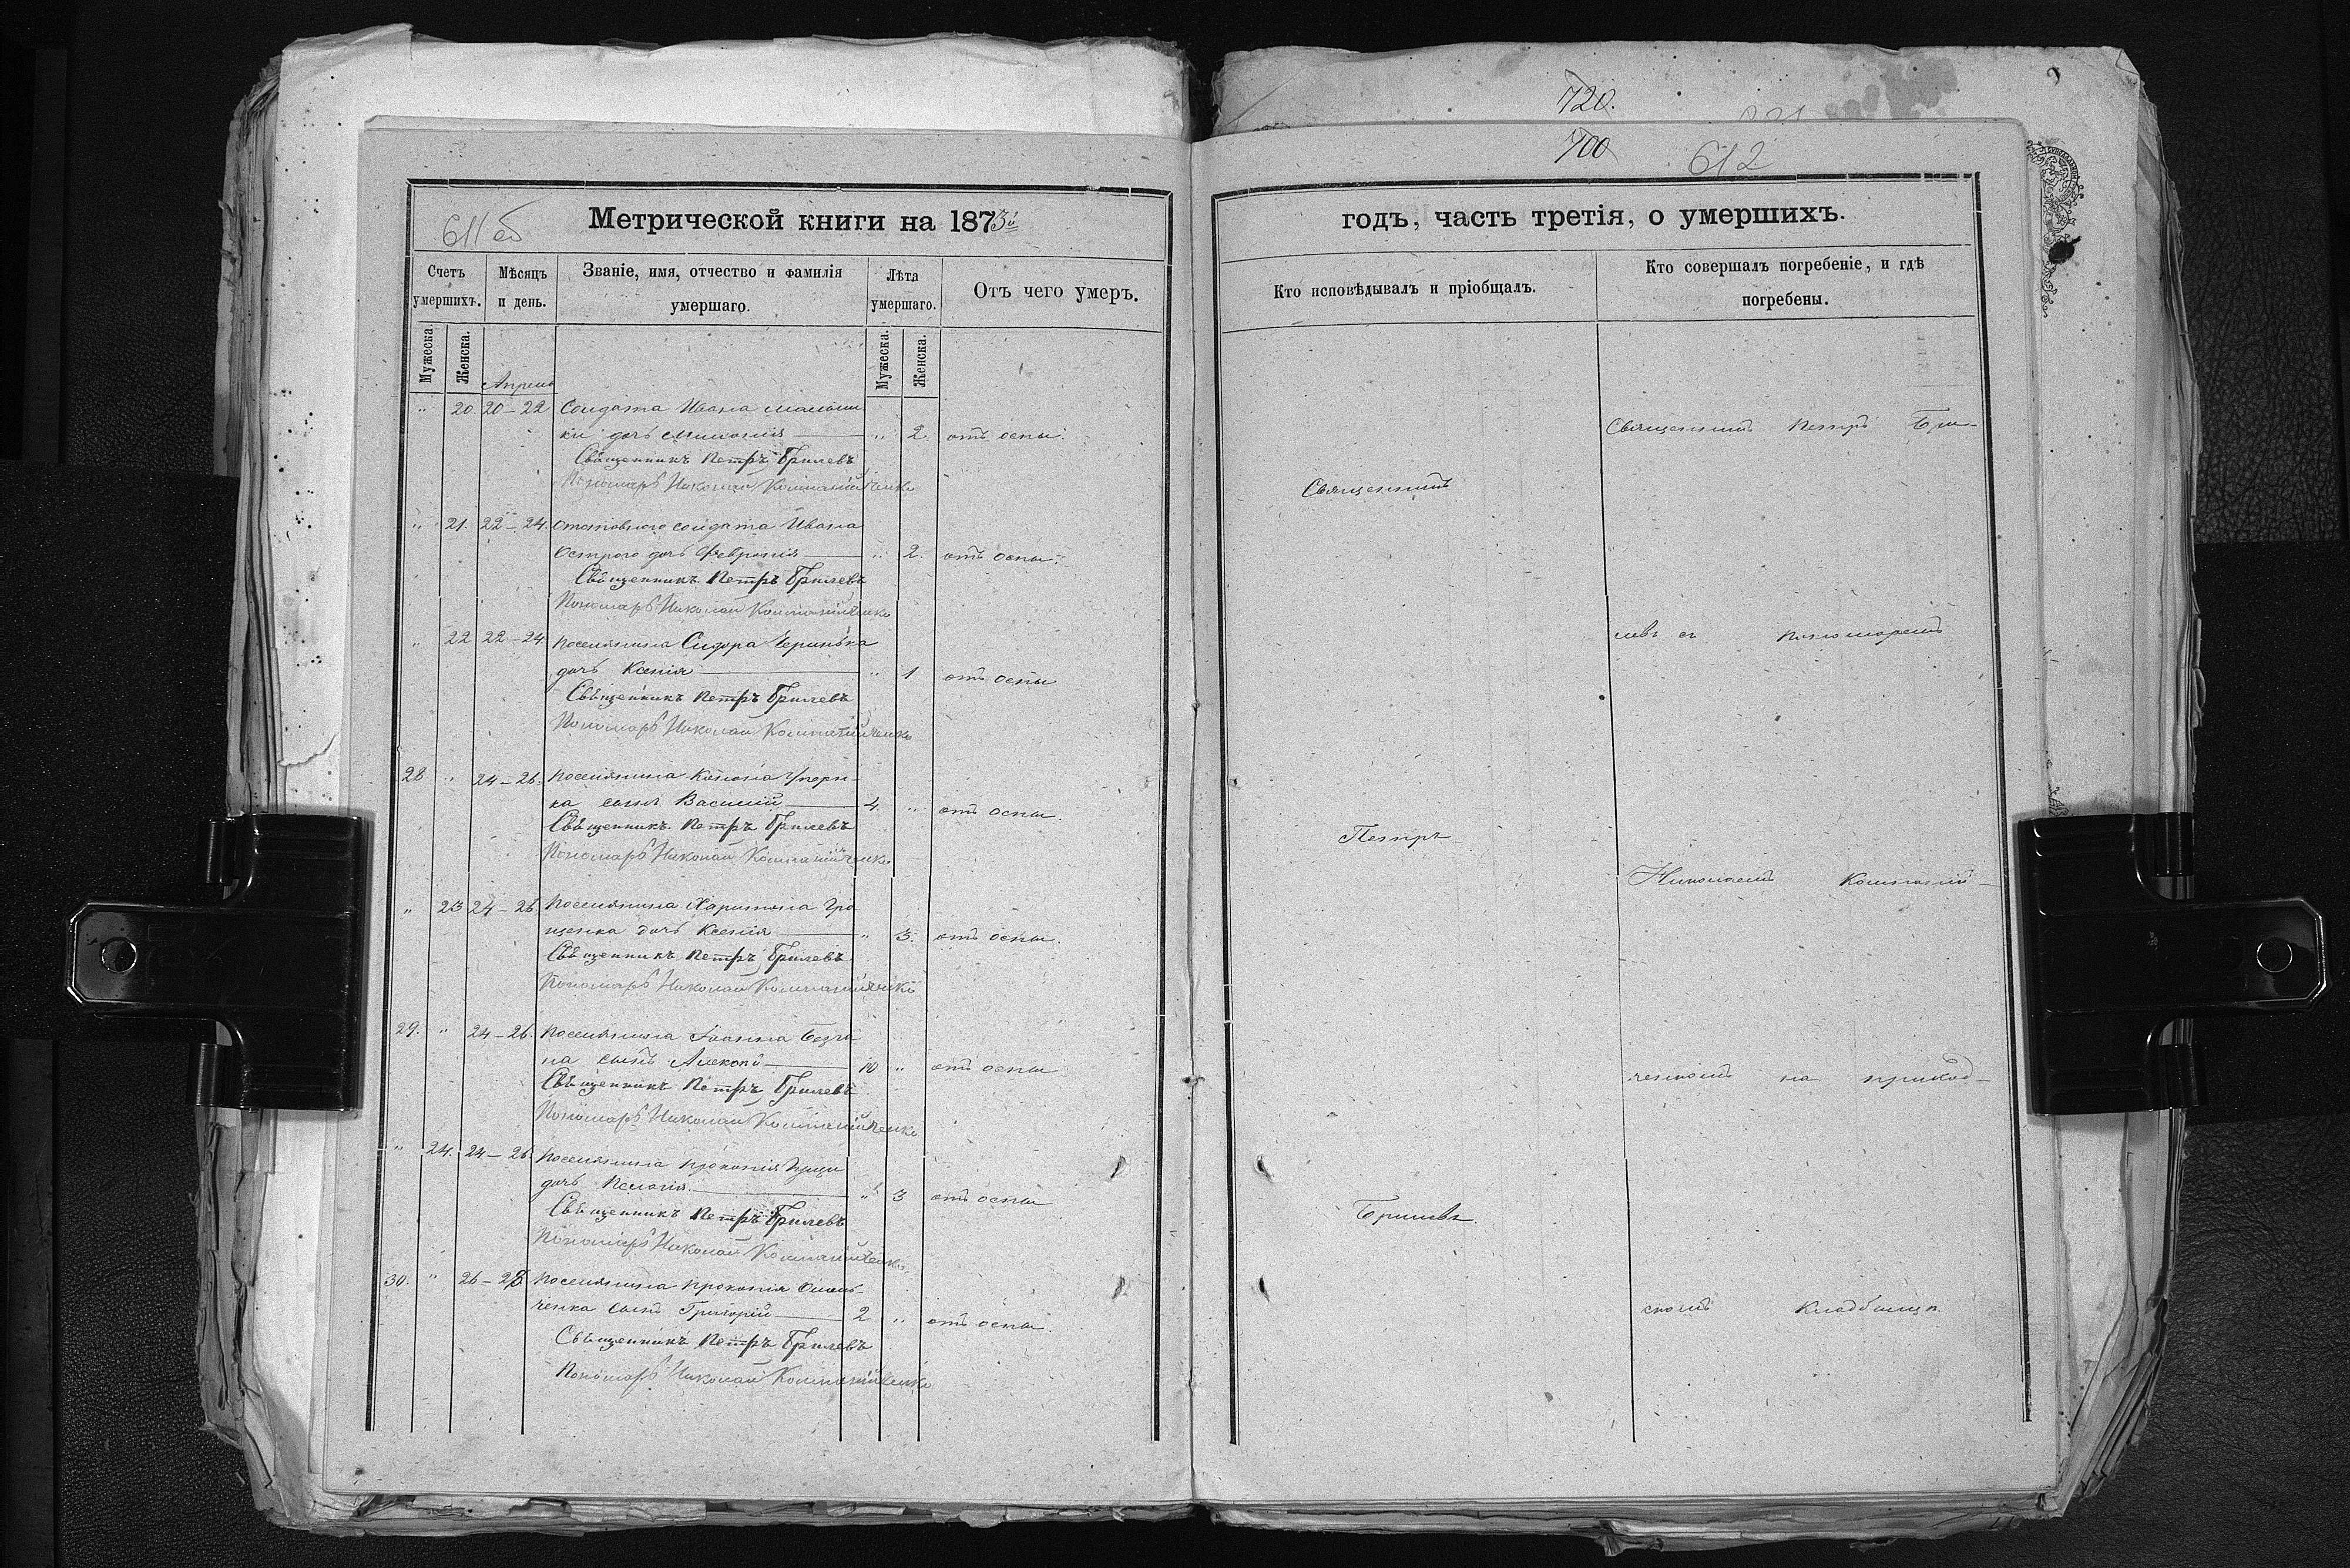 611 об
Метрической книги на 1873й
Счетъ умершихъ.
Мѣсяцъ и день.
Званіе, имя, отчество и фамилія умершаго.
Лѣта умершаго.
Отъ чего умеръ.
Мужеска.
Женска.
Мужеска.
Женска.
Апрель
" 20. 20-22 Солдата Ивана
ки дочь " 2 отъ оспы.
Священникъ Петръ Брилевъ
Пономарь Николай Компанійченко
" 21. 22-24. Отставного солдата Ивана
Острого дочь Феврония " 2. отъ оспы.
Священникъ Петръ Брилевъ
Пономарь Николай Компанійченко
" 22 22-24. поселянина Сидора
дочь Ксенія " 1 отъ оспы
Священникъ Петръ Брилевъ
Пономарь Николай Компанійченко
28 " 24-26. поселянина Конона
ка сынъ Василий 4. " отъ оспы.
Священникъ Петръ Брилевъ
Пономарь Николай Компанійченко
" 23 24-26. поселянина Харитона Гра
щенка дочь Ксенія " 3. отъ оспы.
Священникъ Петръ Брилевъ
Пономарь Николай Компанійченко
29. " 24-26. поселянина Іоанна
на сынъ 10 " отъ оспы
Священникъ Петръ Брилевъ
Пономарь Николай Компанійченко
" 24. 24-26. поселянина Прокопія
дочь Пелагія " 3 отъ оспы
Священникъ Петръ Брилевъ
Пономарь Николай Компанійченко
30. " 26-28 поселянина Прокопія Омель-
ченка сынъ Григорий 2 " отъ оспы.
Священникъ Петръ Брилевъ
Пономарь Николай Компанійченко
720.
700
612
годъ, часть третія, о умершихъ.
Кто исповѣдывалъ и пріобщалъ.
Кто совершалъ погребеніе, и гдѣ погребены.
Священникъ
Петръ
Брилевъ.
Священникъ Петръ Бри-
левъ съ пономаремъ
Николаемъ Компаній-
ченкомъ на приход-
скомъ кладбищѣ.